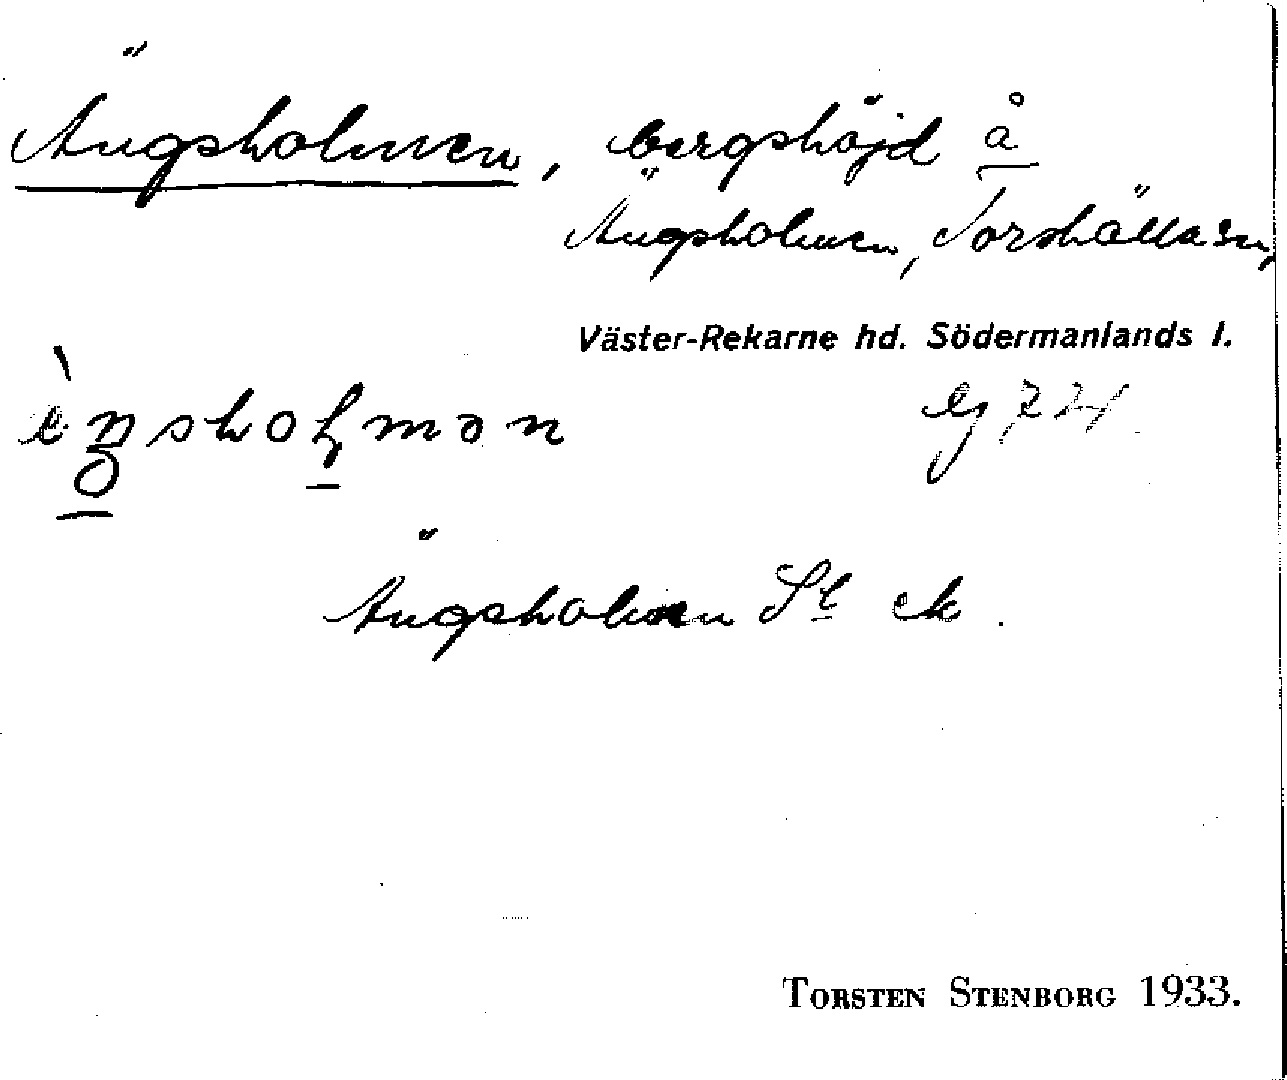 Ängsholmen, bergshöjd å
Ängsholmen, Torshälla sn,
Väster-Rekarne hd. Södermanlands l.
Ängsholmen St ek.
TORSTEN STENBORG 1933.